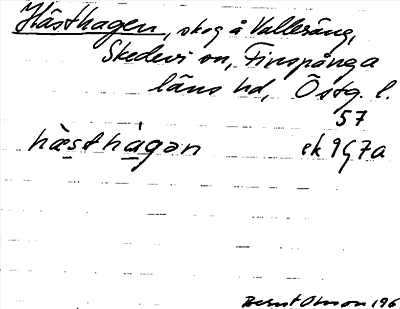 Hästhagen, skog å Valleräng,
Skedevi sn, Finspånga
läns hd, Östg. l.
57
hæ̀sthàgən ek 9G7a
Bernt Olsson 196